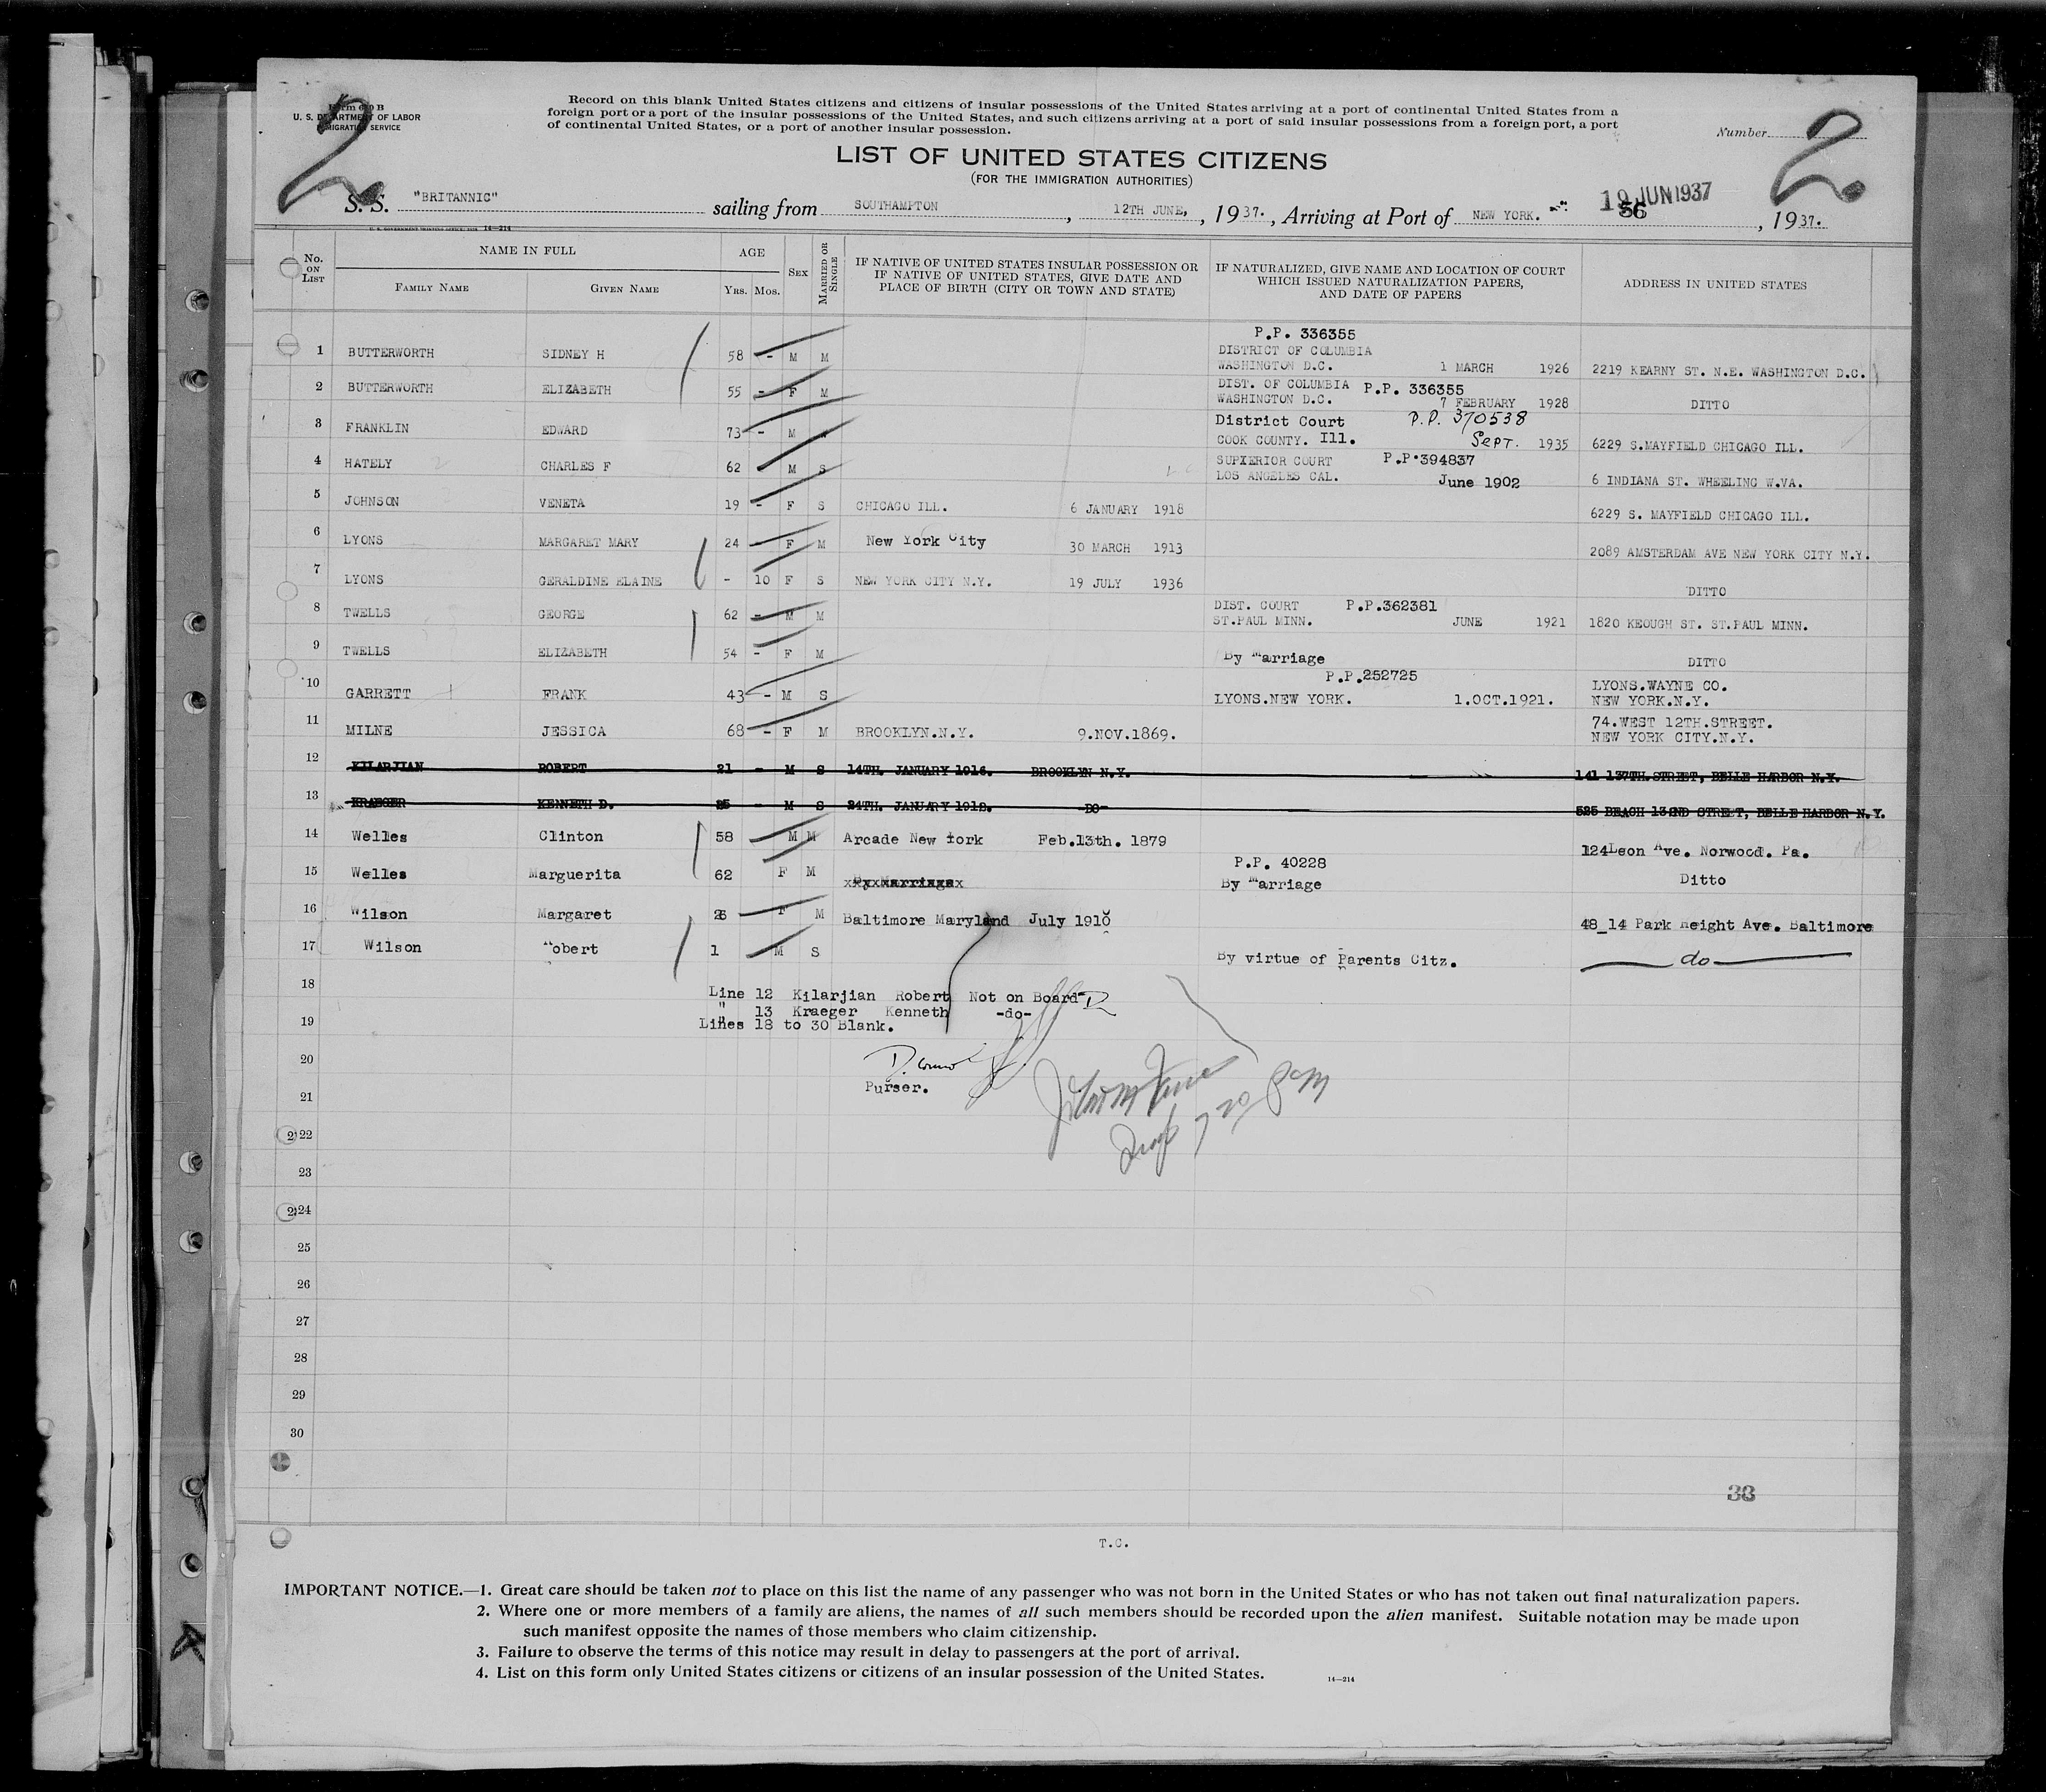 Form 630 B
U. S. DEPARTMENT OF LABOR
IMMIGRATION SERVICE
2
Record on this blank United States citizens and citizens of insular possessions of the United States arriving at a port of continental United States from a
foreign port or a port of the insular possessions of the United States, and such citizens arriving at a port of said insular possessions from a foreign port, a port
of continental United States, or a port of another insular possession.
Number 2
LIST OF UNITED STATES CITIZENS
(FOR THE IMMIGRATION AUTHORITIES)
S. S. "BRITANNIC" sailing from SOUTHAMPTON, 12TH JUNE, 1937., Arriving at Port of NEW YORK. 19 JUN 1937 56, 1937.
No. ON LIST NAME IN FULL AGE SEX MARRIED OR SINGLE IF NATIVE OF UNITED STATES INSULAR POSSESSION OR IF NATIVE OF UNITED STATES, GIVE DATE AND PLACE OF BIRTH (CITY OR TOWN AND STATE) IF NATURALIZED, GIVE NAME AND LOCATION OF COURT WHICH ISSUED NATURALIZATION PAPERS, AND DATE OF PAPERS ADDRESS IN UNITED STATES
FAMILY NAME GIVEN NAME YRS. MOS.
P.P. 336355
DISTRICT OF COLUMBIA
1 BUTTERWORTH SIDNEY H 58 - M M WASHINGTON D.C. 1 MARCH 1926 2219 KEARNY ST. N.E. WASHINGTON D.C.
DIST. OF COLUMBIA P.P. 336355
2 BUTTERWORTH ELIZABETH 55 - F M WASHINGTON D.C. 7 FEBRUARY 1928 DITTO
District Court P.P. 370538
3 FRANKLIN EDWARD 73 - M COOK COUNTY. Ill. SEPT. 1935 6229 S.MAYFIELD CHICAGO ILL.
SUPIERIOR COURT P.P.394837
4 HATELY CHARLES F 62 M S LOS ANGELES CAL. June 1902 6 INDIANA ST. WHEELING W.VA.
5 JOHNSON VENETA 19 - F S CHICAGO ILL. 6 JANUARY 1918 6229 S. MAYFIELD CHICAGO ILL.
6 LYONS MARGARET MARY 24 - F M New York City 30 MARCH 1913 2089 AMSTERDAM AVE NEW YORK CITY N.Y.
7 LYONS GERALDINE ELAINE - 10 F S NEW YORK CITY N.Y. 19 JULY 1936 DITTO
DIST. COURT P.P.362381
8 TWELLS GEORGE 62 - M M ST.PAUL MINN. JUNE 1921 1820 KEOUGH ST. ST.PAUL MINN.
9 TWELLS ELIZABETH 54 - F M By Marriage DITTO
P.P.252725
10 GARRETT FRANK 43 - M S LYONS.NEW YORK. 1.OCT.1921. LYONS.WAYNE CO.
NEW YORK.N.Y.
11 MILNE JESSICA 68 - F M BROOKLYN.N.Y. 9.NOV.1869. 74.WEST 12TH.STREET.
NEW YORK CITY.N.Y.
12 KILARJIAN ROBERT 21 - M S 14TH. JANUARY 1916. BROOKLYN N.Y. 141 137TH. STREET, BELLE HARBOR N.Y.
13 KRAEGER KENNETH D. 25 - M S 24TH. JANUARY 1912. -DO- 525 BEACH 132ND STREET, BELLE HARBOR N.Y.
14 Welles Clinton 58 M M Arcade New York Feb.13th. 1879 124Leon Ave. Norwood. Pa.
P.P. 40228
15 Welles Marguerita 62 F M By Marriage By Marriage Ditto
16 Wilson Margaret 26 F M Baltimore Maryland July 1910 48_14 Park Height Ave. Baltimore
17 Wilson Robert 1 M S By virtue of Parents Citz. do
18
Line 12 Kilarjian Robert Not on Board
" 13 Kraeger Kenneth -do-
19
Lines 18 to 30 Blank.
20
Purser.
21
22
23
24
25
26
27
28
29
30
33
T.C.
IMPORTANT NOTICE.—1. Great care should be taken not to place on this list the name of any passenger who was not born in the United States or who has not taken out final naturalization papers.
2. Where one or more members of a family are aliens, the names of all such members should be recorded upon the alien manifest. Suitable notation may be made upon
such manifest opposite the names of those members who claim citizenship.
3. Failure to observe the terms of this notice may result in delay to passengers at the port of arrival.
4. List on this form only United States citizens or citizens of an insular possession of the United States.
14—214